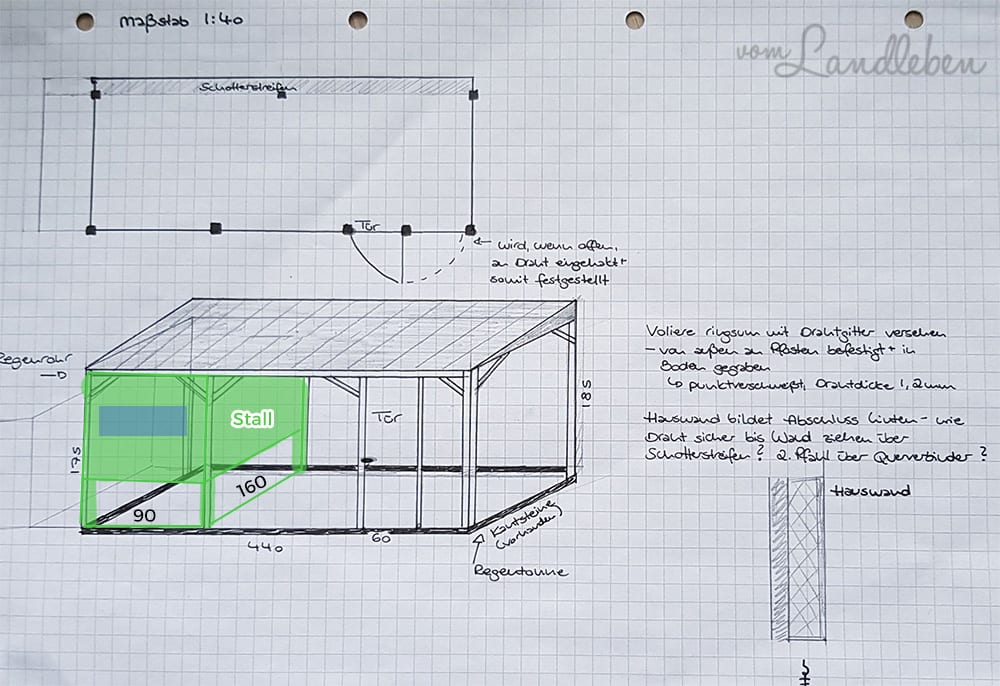 Maßstab 1:40
vom Landleben
Schotterstreifen
Tür
wird, wenn offen,
an Draht eingehakt +
somit festgestellt
Regenrohr
Stall
Tür
175
185
90
160
440
60
Kantsteine
(vorhanden)
Regentonne
Voliere ringsum mit Drahtgitter versehen
- von außen an Pfosten befestigt + in
Boden gegraben
↳ punktverschweißt, Drahtdicke 1,2mm
Hauswand bildet Abschluss hinten - wie
Draht sicher bis Wand ziehen über
Schotterstreifen? 2. Pfahl über Querverbinder?
Hauswand